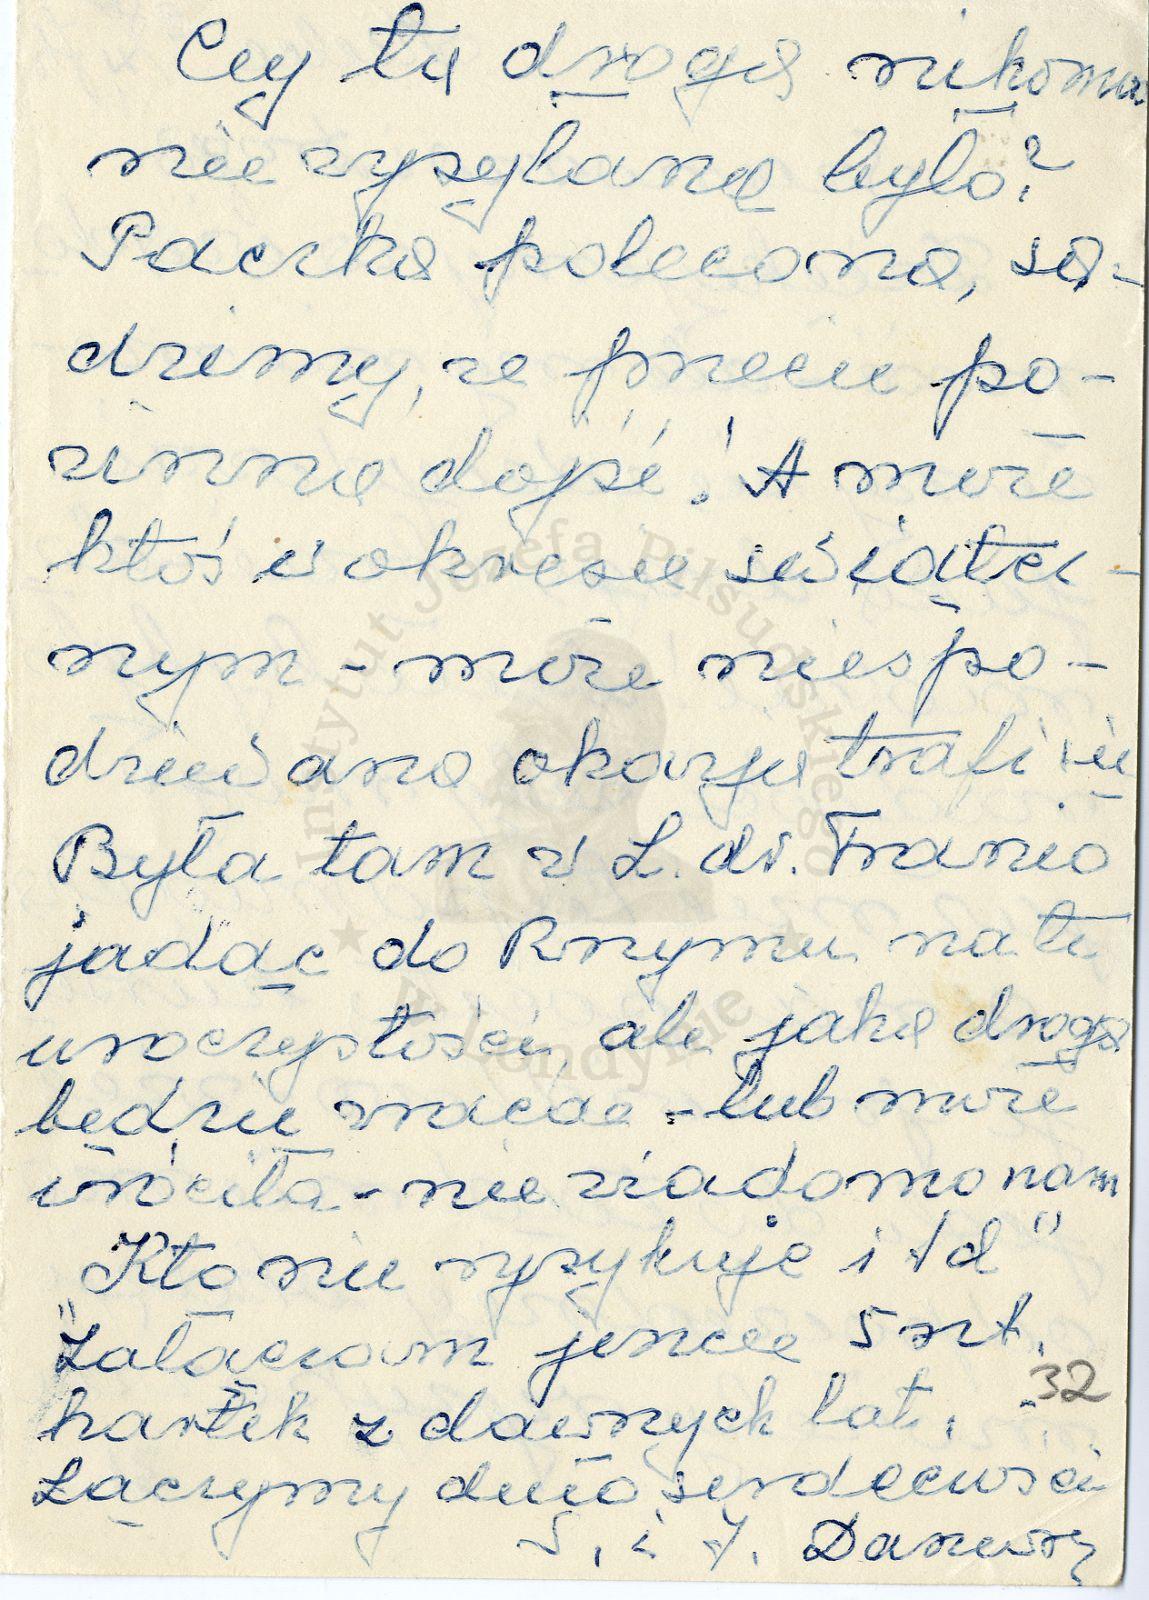 Czy tą drogą nikomu
nie wysyłane było?
Paczka polecona, są-
dzimy, że przecie po-
winna dojść! A może
ktoś w okresie świątecz-
nym - może niespo-
dziewana okazja trafi się
Była tam w L. dr. Frania
jadąc do Rzymu na te
uroczystości, ale jaką drogą
będzie wracać - lub może
wróciła - nie wiadomo nam
"Kto nie ryzykuje i td"
Załączam jeszcze 5 szt.
kartek z dawnych lat.
32
Łączymy dużo serdeczności
S. i J.
Instytut Józefa Piłsudskiego
w Londynie